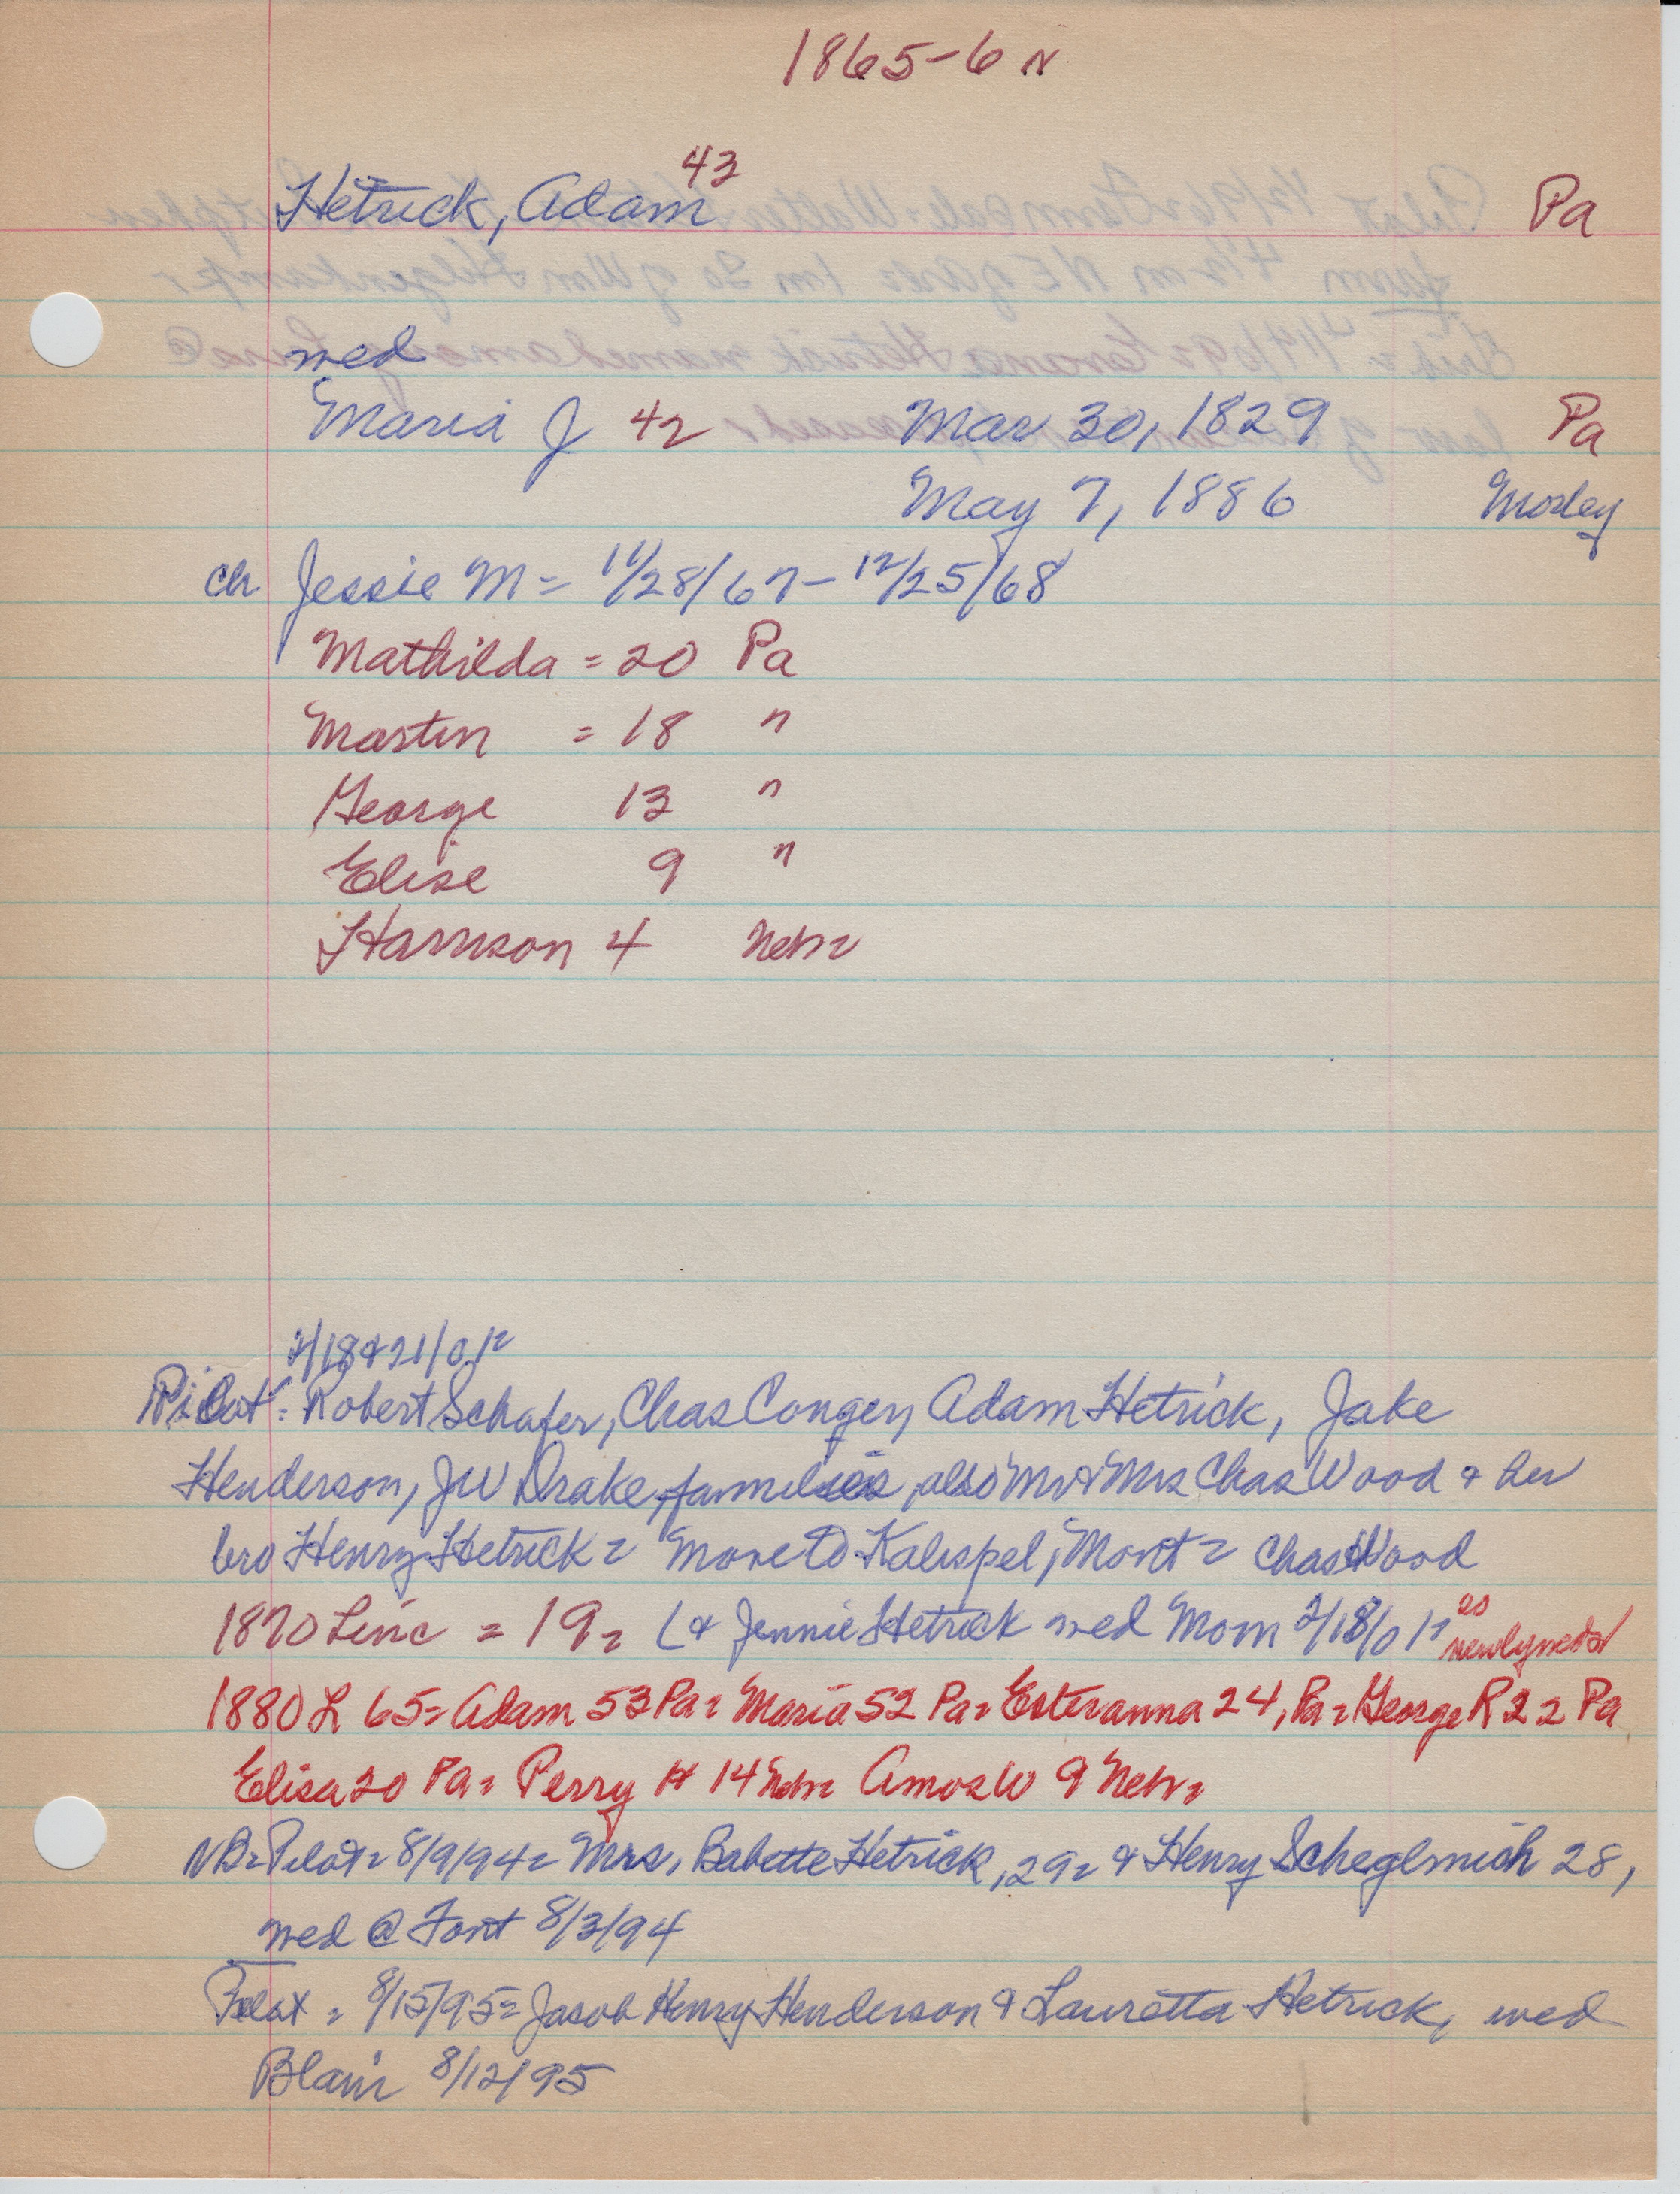 1865-6 N
Hetrick, Adam 43 Pa
wed
Maria J 42 Mar 30, 1829 Pa
May 7, 1886 Morley
ch Jessie M = 11/28/67 - 12/25/68
Mathilda = 20 Pa
Martin = 18 "
George 13 "
Elise 9 "
Harrison 4 Nebr
2/18&21/01=
Pilot = Robert Schafer, Chas Conger, Adam Hetrick, Jake
Henderson, JW Drake, families, also Mr & Mrs Chas Wood & her
bro Henry Hetrick = move to Kalispel, Mont = Chas Wood
1870 Linc = 19 = (& Jennie Hetrick wed Mom 2/18/01= as newlyweds)
1880 L 65 = Adam 53 Pa = Maria 52 Pa = Esteranna 24, Pa = George R 22 Pa
Elisa 20 Pa = Perry H 14 Nebr = Amos W 9 Nebr =
NB = Pilot = 8/9/94 = Mrs. Babette Hetrick, 29 = & Henry Scheglmich 28,
wed @ Font 8/3/94
Pilot = 8/15/95 = Jacob Henry Henderson & Lauretta Hetrick, wed
Blair 8/12/95